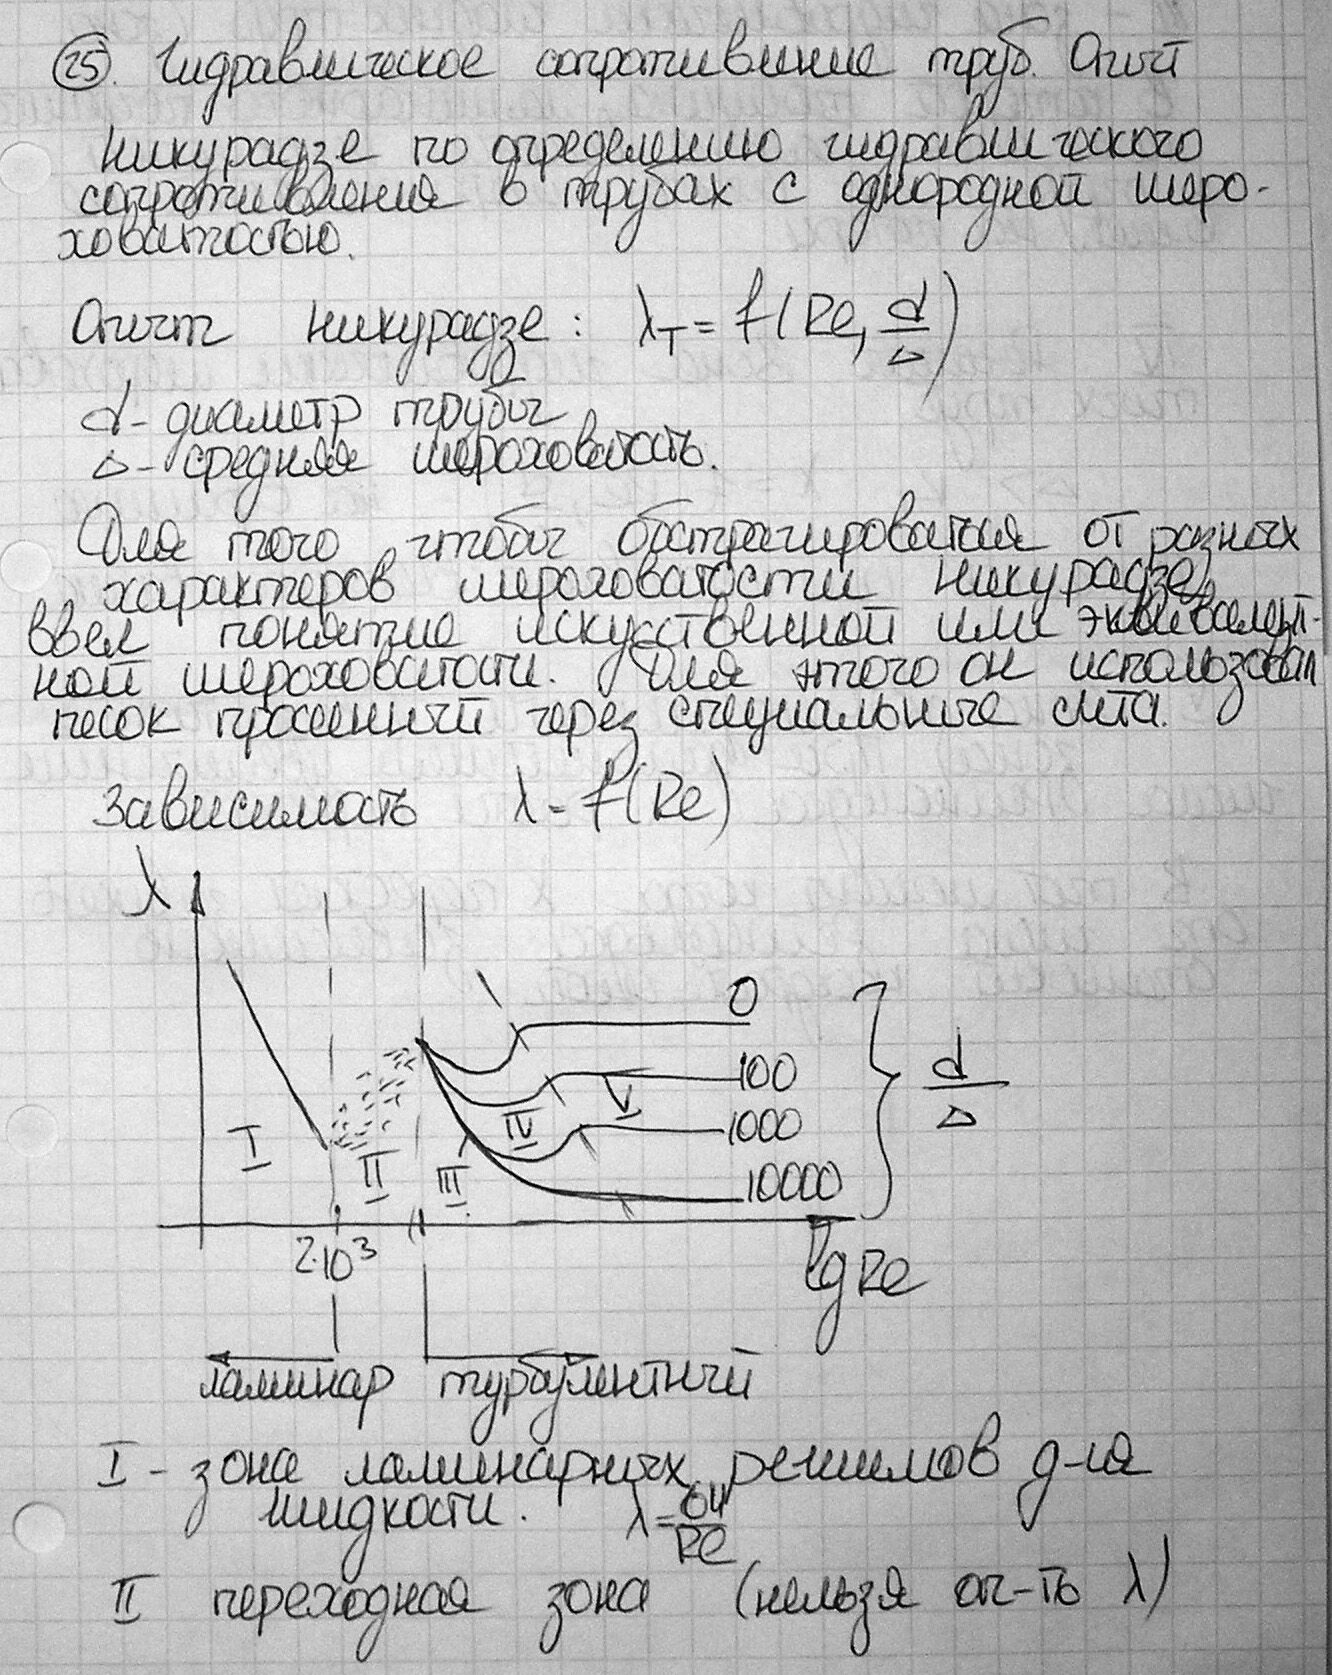 25. Гидравлическое сопротивление труб. Опыт
Никурадзе по определению гидравлического
сопротивления в трубах с однородной шеро-
ховатостью.
Опыт Никурадзе: λт = f(Re, d/Δ)
d - диаметр трубы
Δ - средняя шероховатость.
Для того чтобы абстрагироваться от разных
характеров шероховатости Никурадзе
ввел понятие искусственной или эквивалент-
ной шероховатости. Для этого он использовал
песок просеенный через специальные сита.
Зависимость λ = f(Re)
λ
0
100
1000
10000
d/Δ
I
II
III
IV
V
2·10³
lg Re
ламинар турбулентный
I - зона ламинарных режимов д-ля
жидкости. λ = 64/Re
II переходная зона (нельзя оп-ть λ)